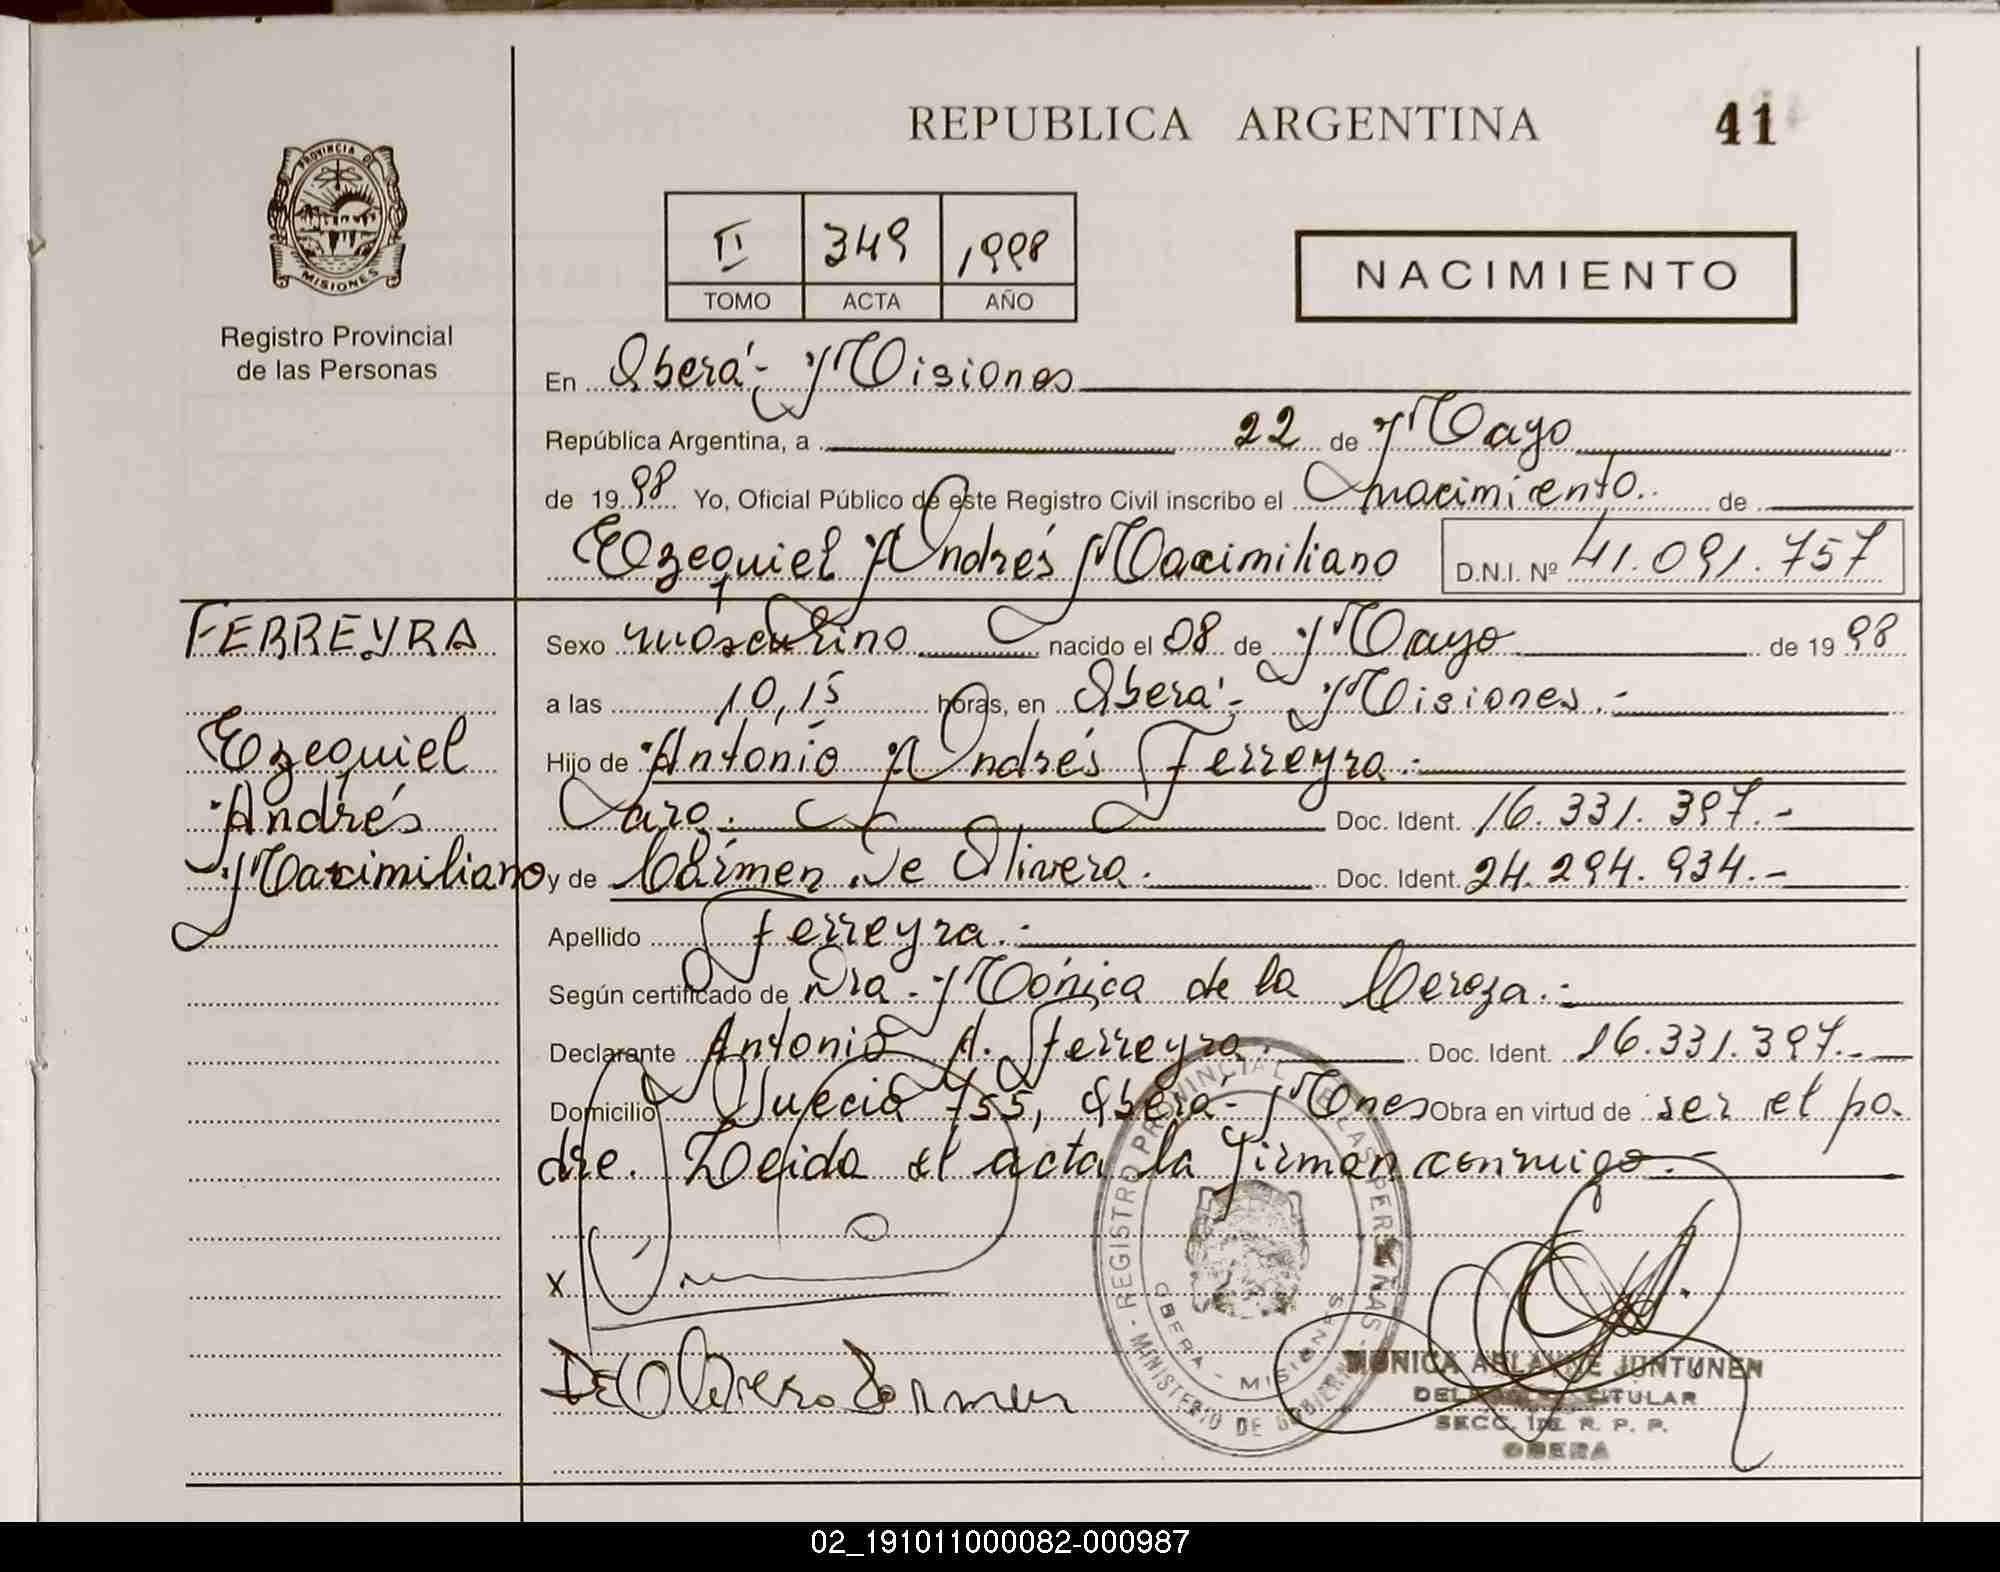 REPUBLICA ARGENTINA
41
PROVINCIA DE
MISIONES
Registro Provincial
de las Personas
II 349 1998
TOMO ACTA AÑO
NACIMIENTO
En Oberá - Misiones
República Argentina, a 22 de Mayo
de 1998 Yo, Oficial Público de este Registro Civil inscribo el nacimiento de
Ezequiel Andrés Maximiliano D.N.I. Nº 41.091.757
FERREYRA
Ezequiel
Andrés
Maximiliano
Sexo masculino nacido el 08 de Mayo de 1998
a las 10,15 horas, en Oberá - Misiones.-
Hijo de Antonio Andrés Ferreyra.-
Caro. Doc. Ident. 16.331.397.-
y de Cármen De Olivera. Doc. Ident. 24.294.934.-
Apellido Ferreyra.-
Según certificado de Dra. Mónica de la
Declarante Antonio A. Ferreyra. Doc. Ident. 16.331.397.-
Domicilio Suecia 755, Oberá - Mnes Obra en virtud de ser el pa
dre. Leida el acta la firman conmigo.-
X
De Olivera Carmen
REGISTRO PROVINCIAL DE LAS PERSONAS - MINISTERIO DE GOBIERNO
OBERA - MISIONES
MONICA JUNTUNEN
TITULAR
SECC. R. P. P.
OBERA
02_191011000082-000987